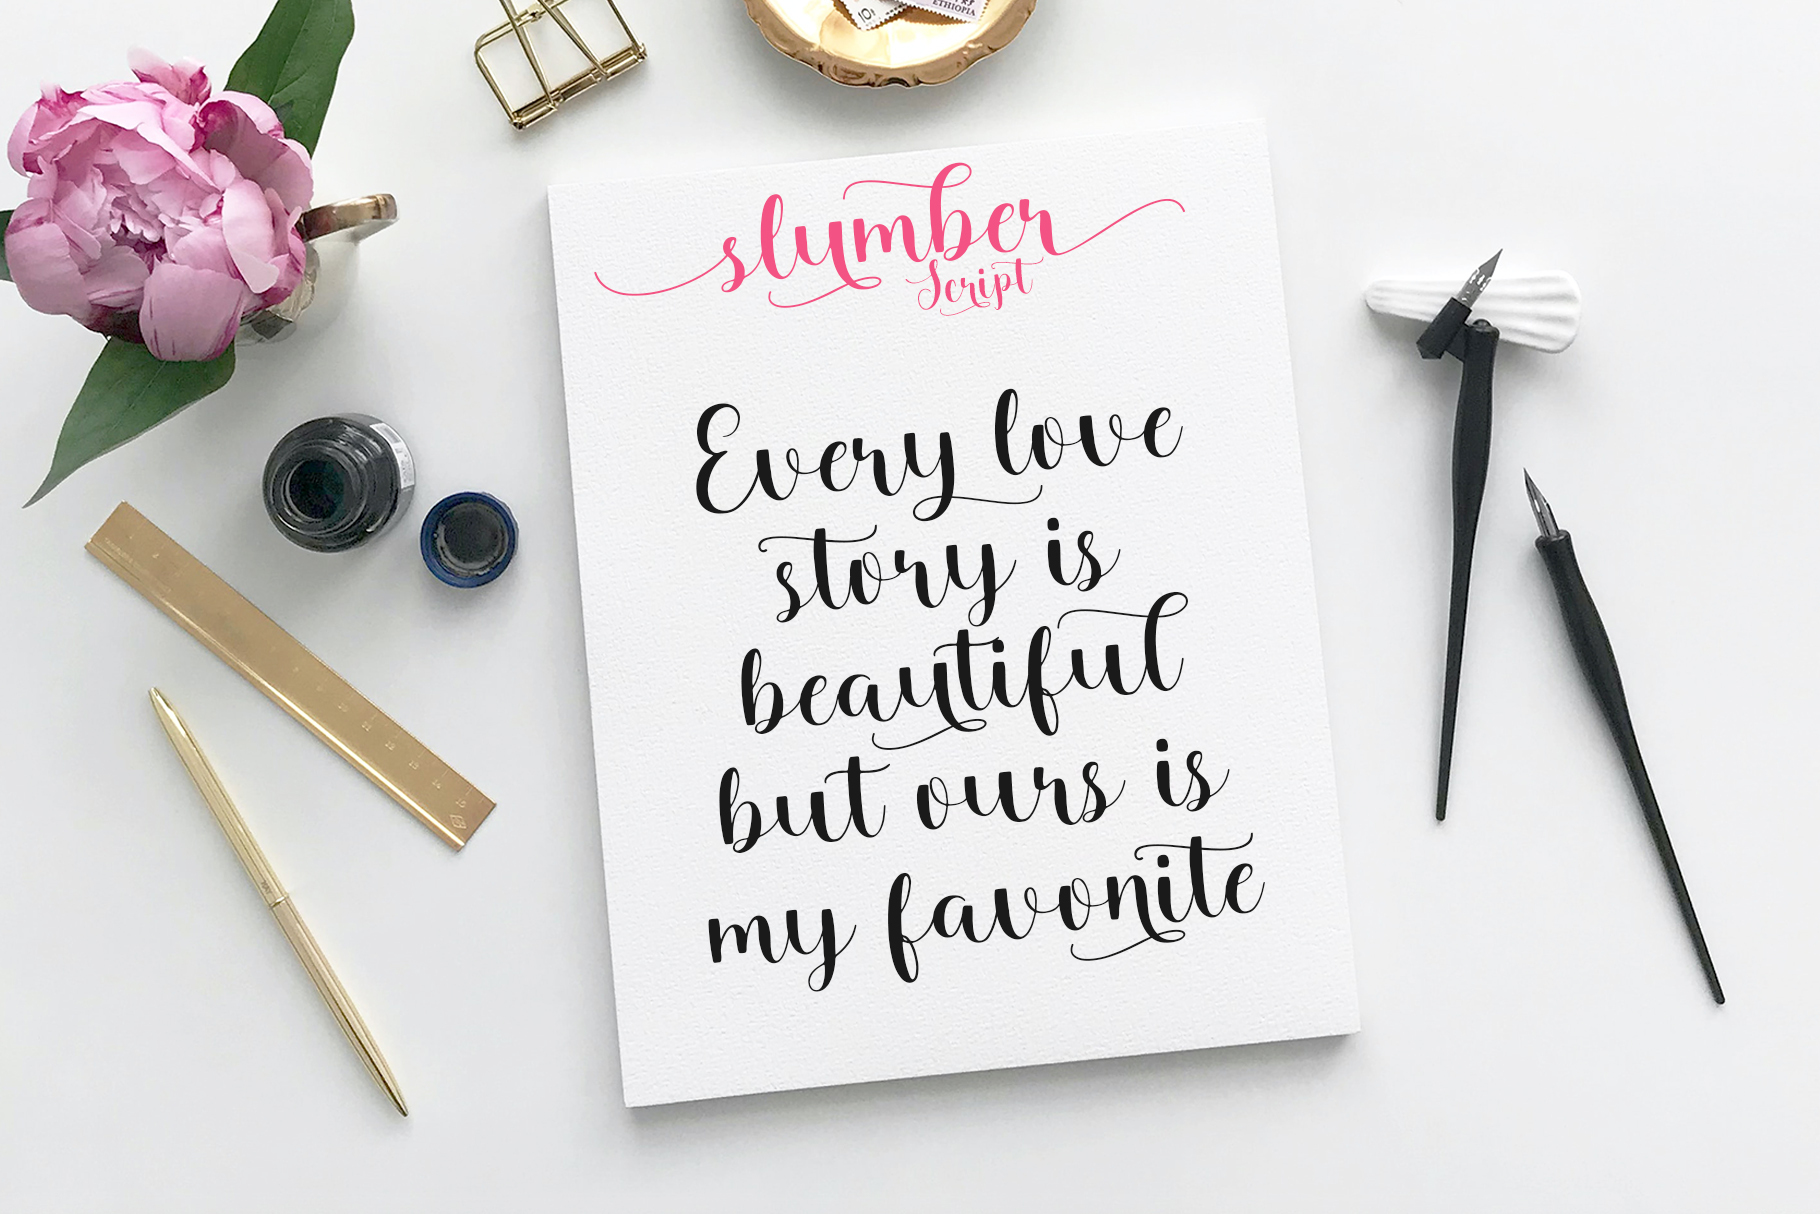 10
ETHIOPIA
slumber
Script
Every love
story is
beautiful
but ours is
my favonite